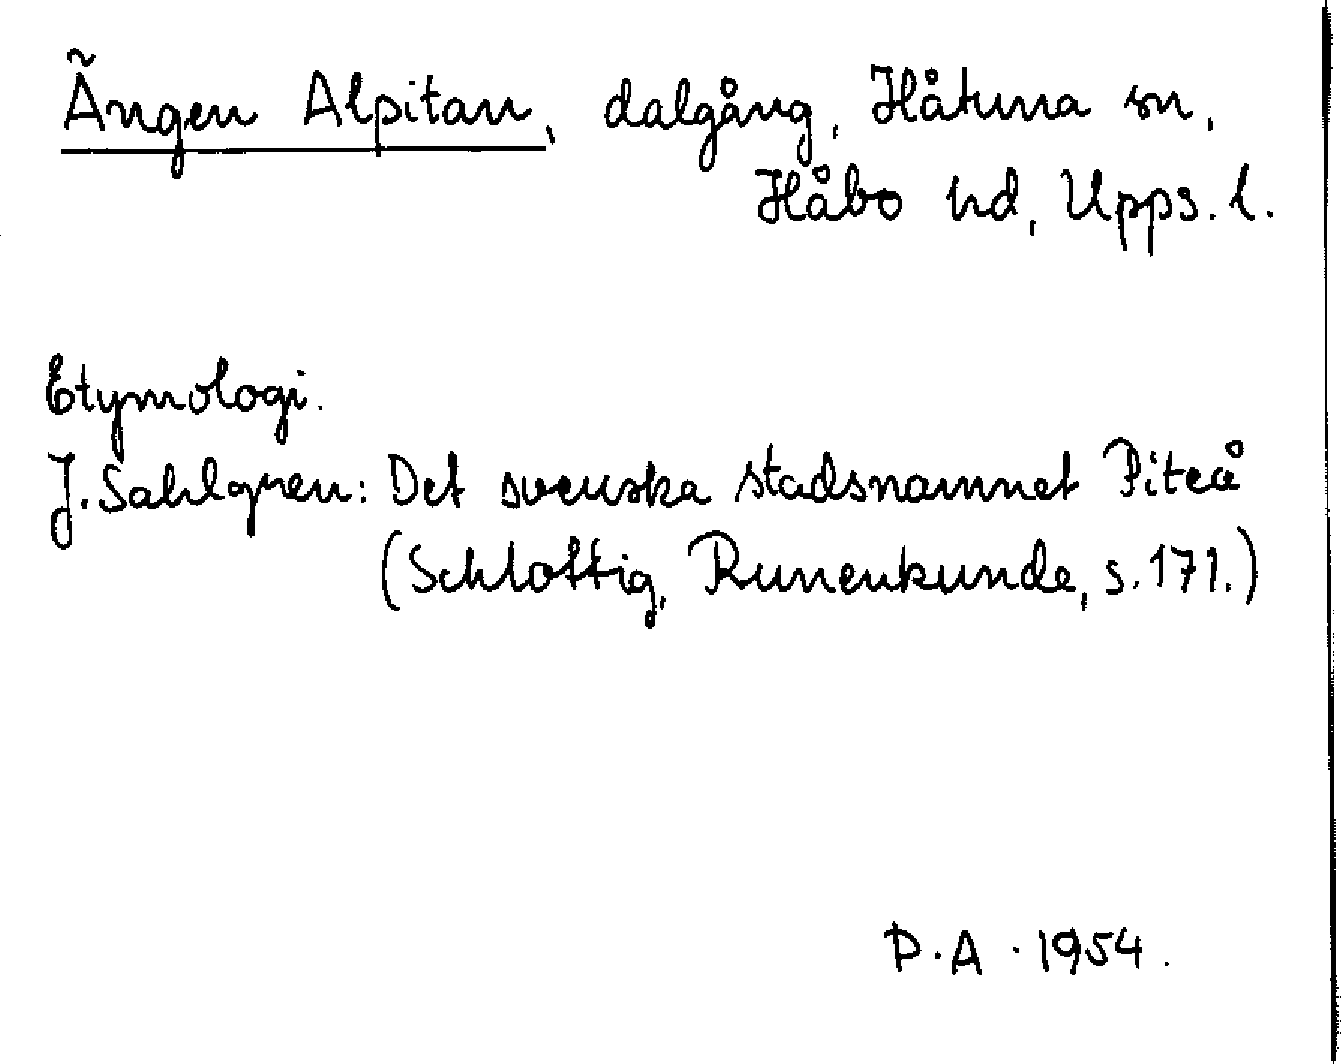 Ängen Alpitan, dalgång, Håtuna sn,
Håbo hd, Upps. l.
Etymologi.
J. Sahlgren: Det svenska stadsnamnet Piteå
(Schlottig, Runenkunde, s. 171.)
P.A. 1954.